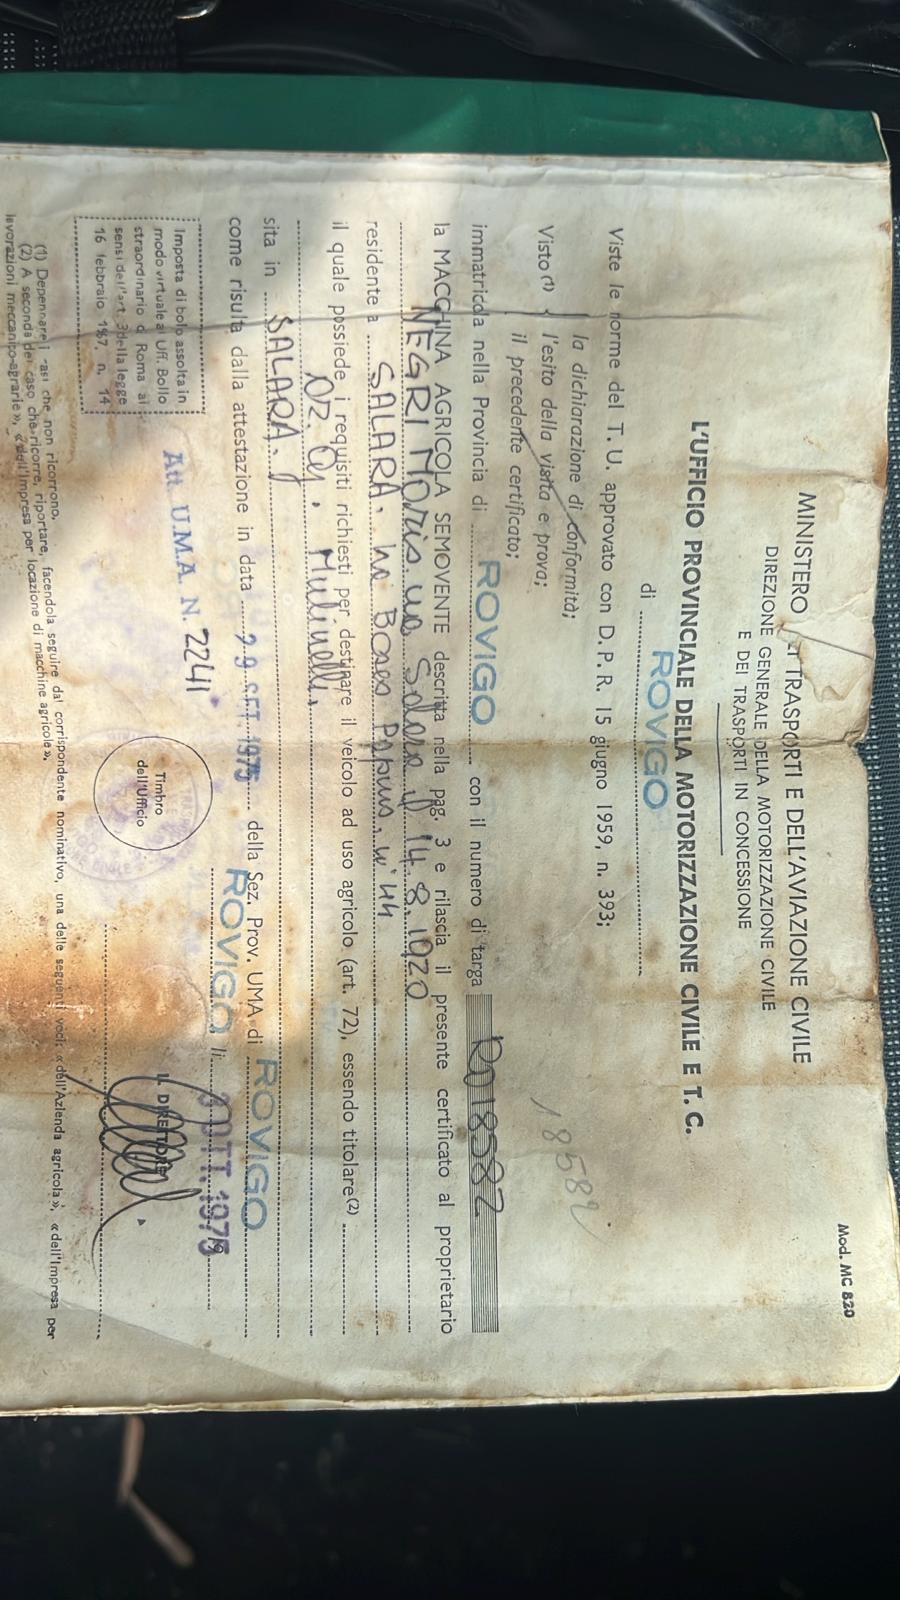 Mod. MC 820
MINISTERO DEI TRASPORTI E DELL'AVIAZIONE CIVILE
DIREZIONE GENERALE DELLA MOTORIZZAZIONE CIVILE
E DEI TRASPORTI IN CONCESSIONE
L'UFFICIO PROVINCIALE DELLA MOTORIZZAZIONE CIVILE E T. C.
di ROVIGO
Viste le norme del T. U. approvato con D. P. R. 15 giugno 1959, n. 393;
la dichiarazione di conformità;
Visto (1) l'esito della visita e prova;
il precedente certificato;
18582
immatricola nella Provincia di ROVIGO con il numero di targa RO18582
la MACCHINA AGRICOLA SEMOVENTE descritta nella pag. 3 e rilascia il presente certificato al proprietario
NEGRI Moris Salara il 14.8.1920
residente a SALARA. N° 44
il quale possiede i requisiti richiesti per destinare il veicolo ad uso agricolo (art. 72), essendo titolare (2)
Mulinelli.
sita in SALARA.
come risulta dalla attestazione in data 29 SET. 1975 della Sez. Prov. UMA di ROVIGO
ROVIGO li OTT. 1975
Imposta di bolo assolta in
modo virtuale al Uff. Bollo
straordinario di Roma ai
sensi dell'art. 3 della legge
16 febbraio 1967, n. 14
Att. U.M.A. N. 2241
Timbro
dell'Ufficio
IL DIRETTORE
(1) Depennare i casi che non ricorrono.
(2) A seconda del caso che ricorre, riportare, facendola seguire dal corrispondente nominativo, una delle seguenti voci: «dell'Azienda agricola», «dell'Impresa per
lavorazioni meccanico-agrarie», «dell'Impresa per locazione di macchine agricole».